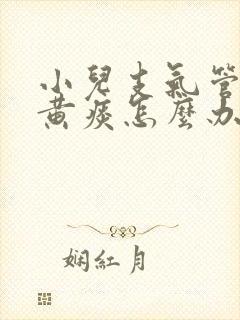 小兒支氣管
黃痰怎麼办
娴紅月